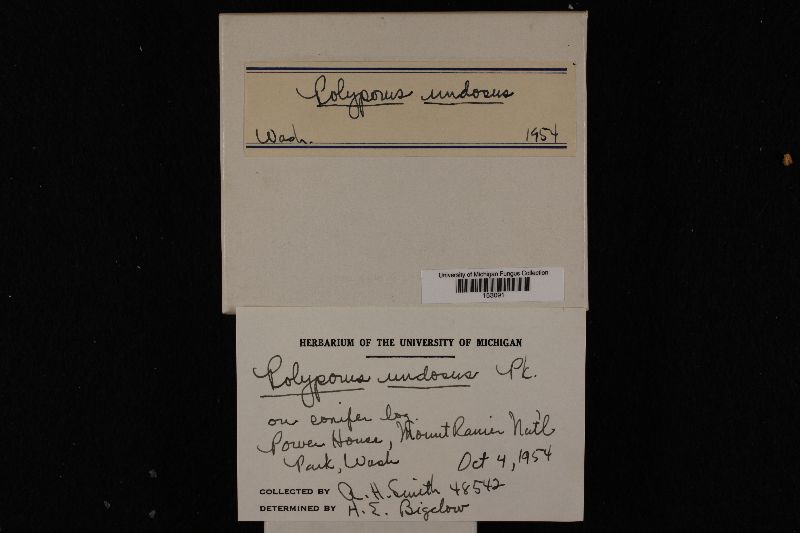 Polyporus undosus
Wash. 1954
University of Michigan Fungus Collection
153091
HERBARIUM OF THE UNIVERSITY OF MICHIGAN
Polyporus undosus Pk.
on conifer log.
Power House, Mount Ranier Nat'l
Park, Wash Oct 4, 1954
COLLECTED BY A. H. Smith 48542
DETERMINED BY H. E. Bigelow